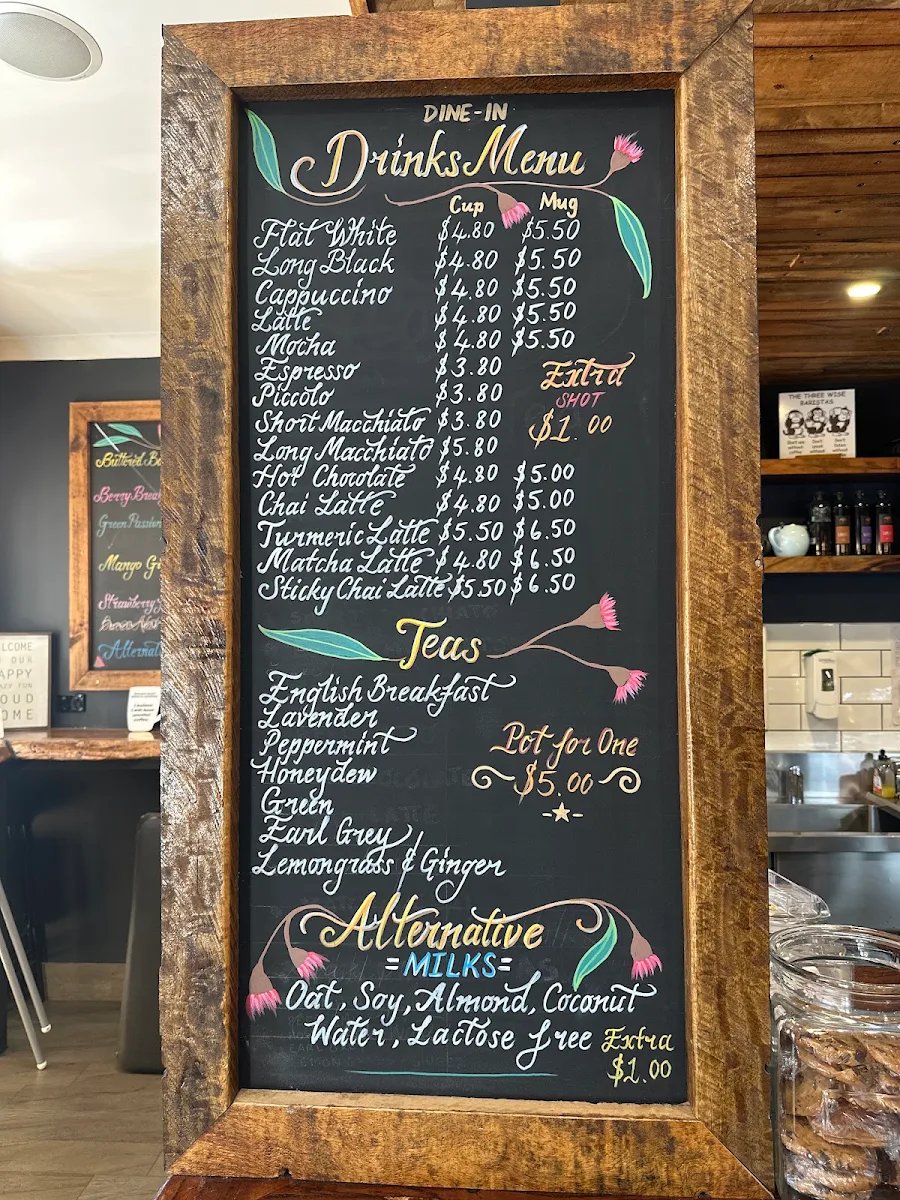 DINE-IN
Drinks Menu
Cup Mug
Flat White $4.80 $5.50
Long Black $4.80 $5.50
Cappuccino $4.80 $5.50
Latte $4.80 $5.50
Mocha $4.80 $5.50
Espresso $3.80
Piccolo $3.80
Short Macchiato $3.80
Long Macchiato $5.80
Hot Chocolate $4.80 $5.00
Chai Latte $4.80 $5.00
Turmeric Latte $5.50 $6.50
Matcha Latte $4.80 $6.50
Sticky Chai Latte $5.50 $6.50
Extra
SHOT
$1.00
Teas
English Breakfast
Lavender
Peppermint
Honeydew
Green
Earl Grey
Lemongrass & Ginger
Pot for One
$5.00
Alternative
=MILKS=
Oat, Soy, Almond, Coconut
Water, Lactose free Extra
$1.00
Buttered
Berry
Green Passion
Mango
Strawberry
THE THREE WISE
BARISTAS